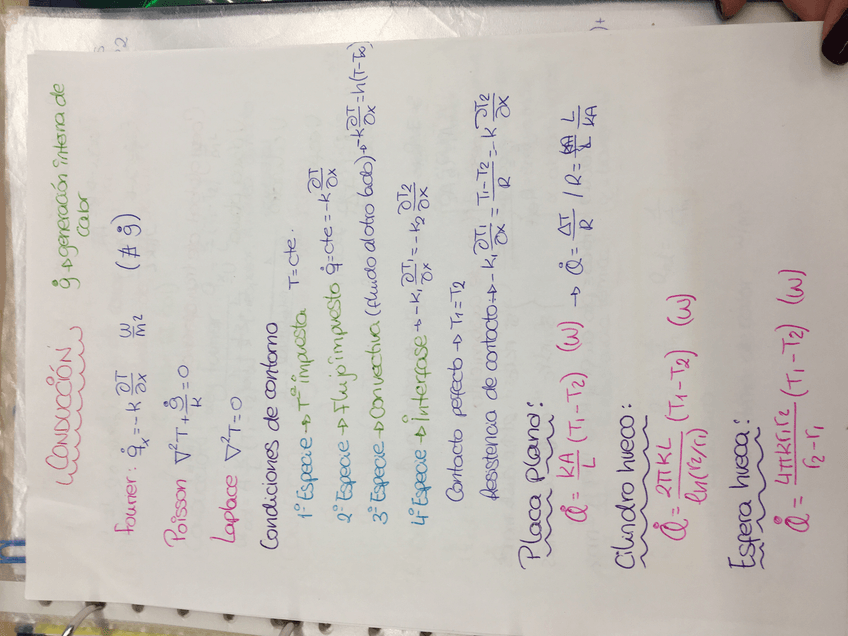 CONDUCCIÓN
g̊ → generación interna de
calor
Fourier: q̊x = -k ∂T/∂x W/m2 (≠ g̊)
Poisson ∇²T + g̊/k = 0
Laplace ∇²T = 0
Condiciones de contorno
1º Especie → Tª impuesta T = cte.
2º Especie → Flujo impuesto q̊ = cte = -k ∂T/∂x
3º Especie → Convectiva (fluido al otro lado) → -k ∂T/∂x = h(T-T∞)
4º Especie → interfase → -k1 ∂T1/∂x = -k2 ∂T2/∂x
Contacto perfecto → T1 = T2
Resistencia de contacto → -k1 ∂T1/∂x = (T1-T2)/R = -k ∂T2/∂x
Placa plana:
Q̊ = KA/L (T1-T2) (W) → Q̊ = ΔT/R / R = L/KA
Cilindro hueco:
Q̊ = 2πKL/ln(r2/r1) (T1-T2) (W)
Esfera hueca:
Q̊ = 4πkr1r2/(r2-r1) (T1-T2) (W)